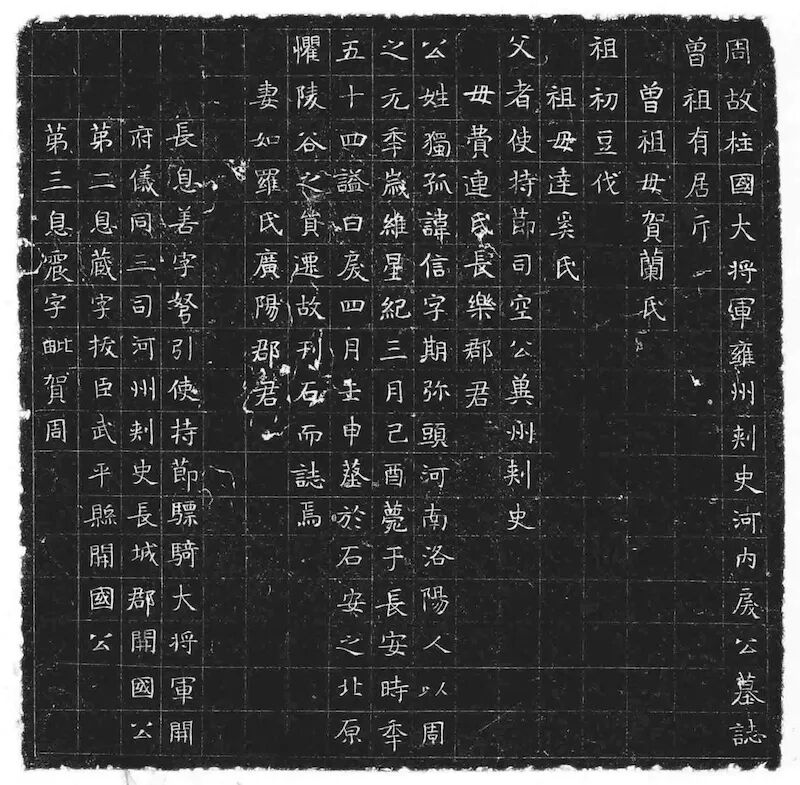 周故柱國大将軍雍州刾史河内戾公墓誌
曾祖有居斤
曾祖母賀蘭氏
祖初豆伐
祖母達奚氏
父者使持節司空公兾州刾史
母費連氏長樂郡君
公姓獨孤諱信字期弥頭河南洛陽人以周
之元秊歳維星紀三月己酉薨于長安時秊
五十四謚曰戾四月壬申葬於石安之北原
懼陵谷之貿遷故刊石而誌焉
妻如羅氏廣陽郡君
長息善字弩引使持節驃騎大将軍開
府儀同三司河州刾史長城郡開國公
第二息藏字拔臣武平縣開國公
第三息震字毗賀周